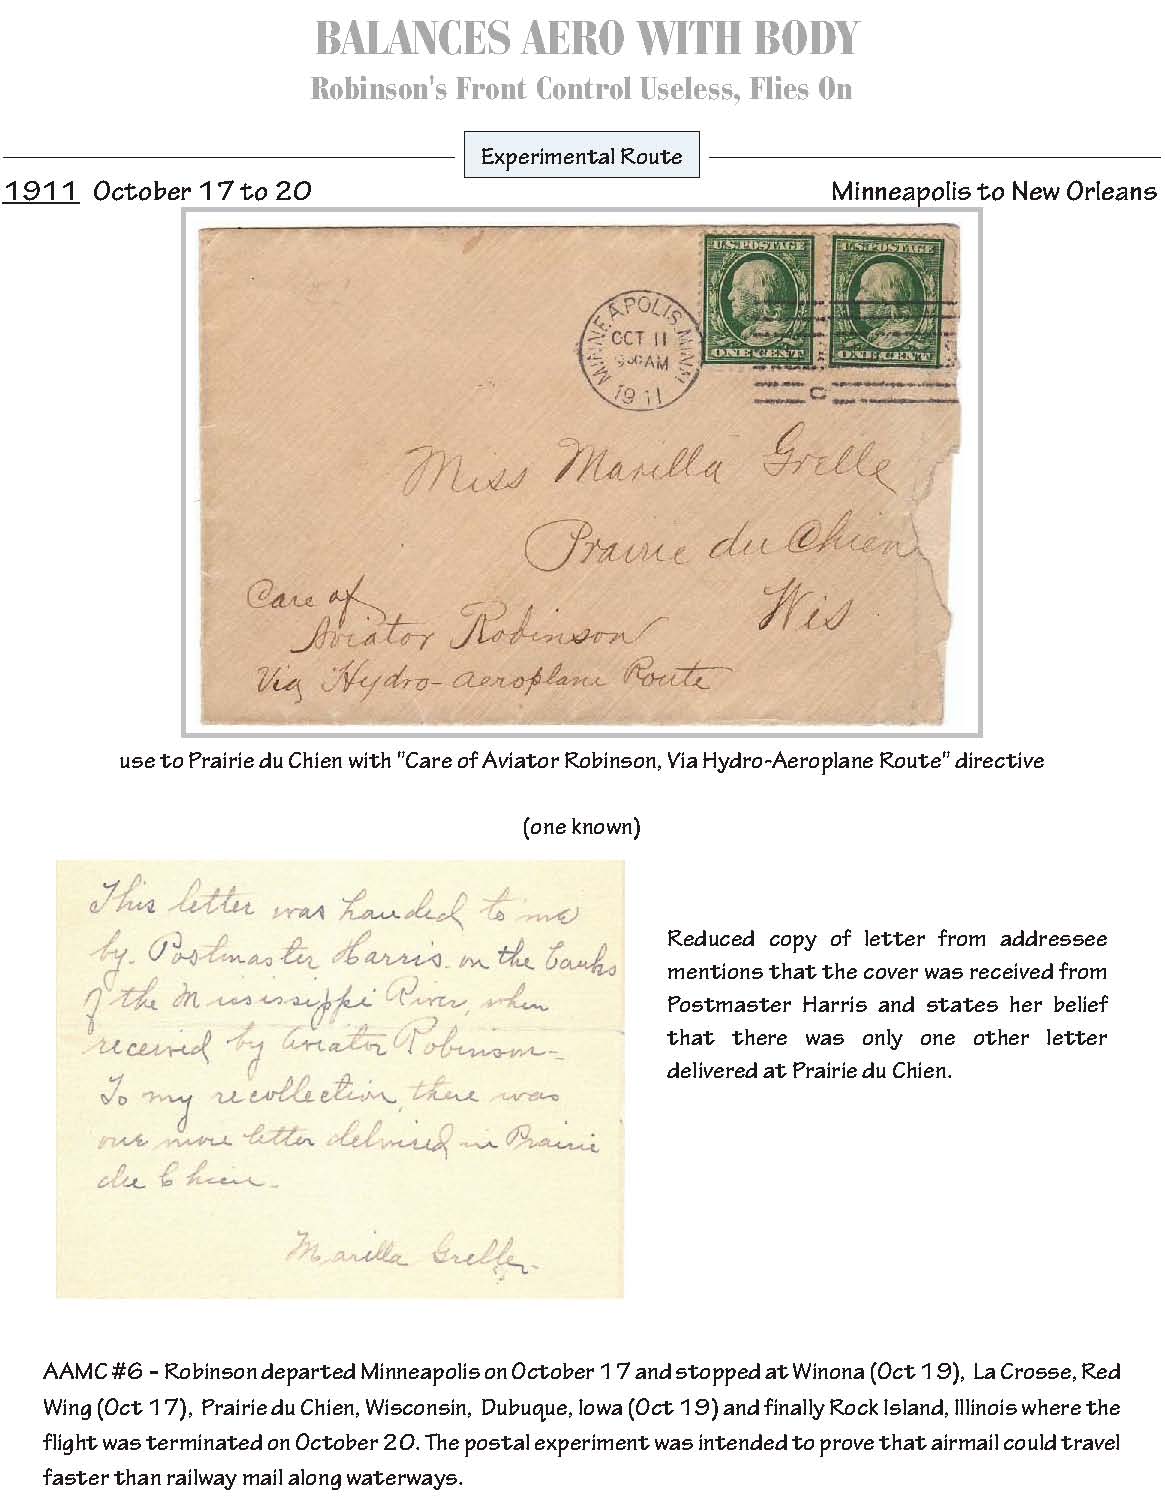 BALANCES AERO WITH BODY
Robinson's Front Control Useless, Flies On
Experimental Route
1911 October 17 to 20
Minneapolis to New Orleans
U.S. POSTAGE U.S. POSTAGE
MINNEAPOLIS, MINN.
OCT 11
9 30 AM
1911
ONE CENT ONE CENT
C
Miss Marilla Grelle
Prairie du Chien
Wis
Care of
Aviator Robinson
Via Hydro-aeroplane Route
use to Prairie du Chien with "Care of Aviator Robinson, Via Hydro-Aeroplane Route" directive
(one known)
This letter was handed to me
by Postmaster Harris on the banks
of the Mississippi River, when
received by Aviator Robinson-
To my recollection, there was
one more letter delivered in Prairie
du Chien-
Marilla
Reduced copy of letter from addressee
mentions that the cover was received from
Postmaster Harris and states her belief
that there was only one other letter
delivered at Prairie du Chien.
AAMC #6 - Robinson departed Minneapolis on October 17 and stopped at Winona (Oct 19), La Crosse, Red
Wing (Oct 17), Prairie du Chien, Wisconsin, Dubuque, Iowa (Oct 19) and finally Rock Island, Illinois where the
flight was terminated on October 20. The postal experiment was intended to prove that airmail could travel
faster than railway mail along waterways.